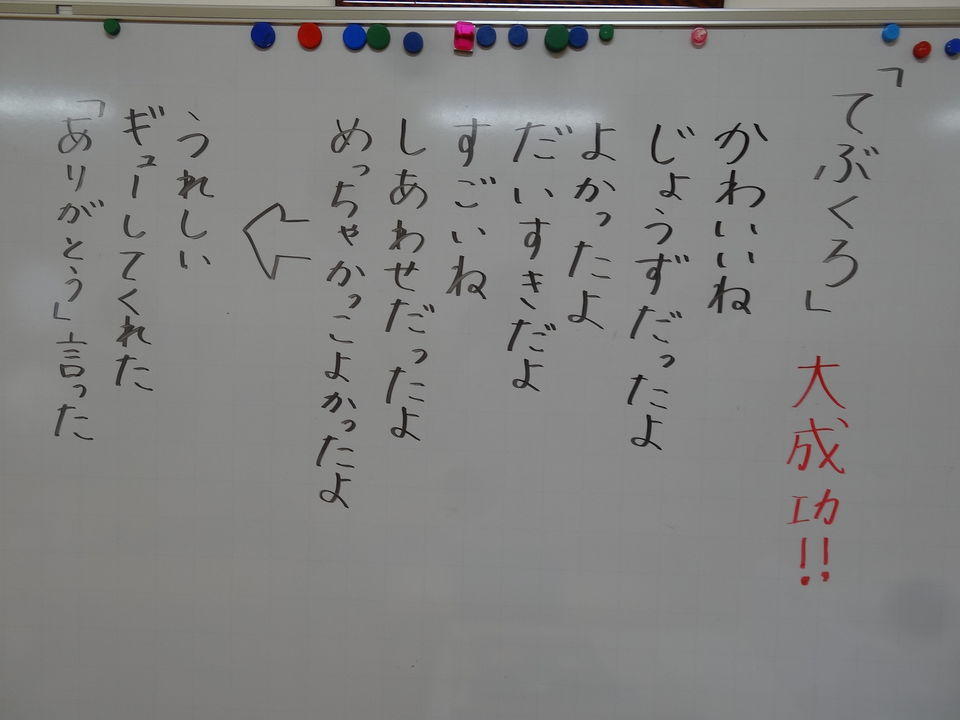 「てぶくろ」 大成功!!
かわいいね
じょうずだったよ
よかったよ
だいすきだよ
すごいね
しあわせだったよ
めっちゃかっこよかったよ
うれしい
ギューしてくれた
「ありがとう」言った